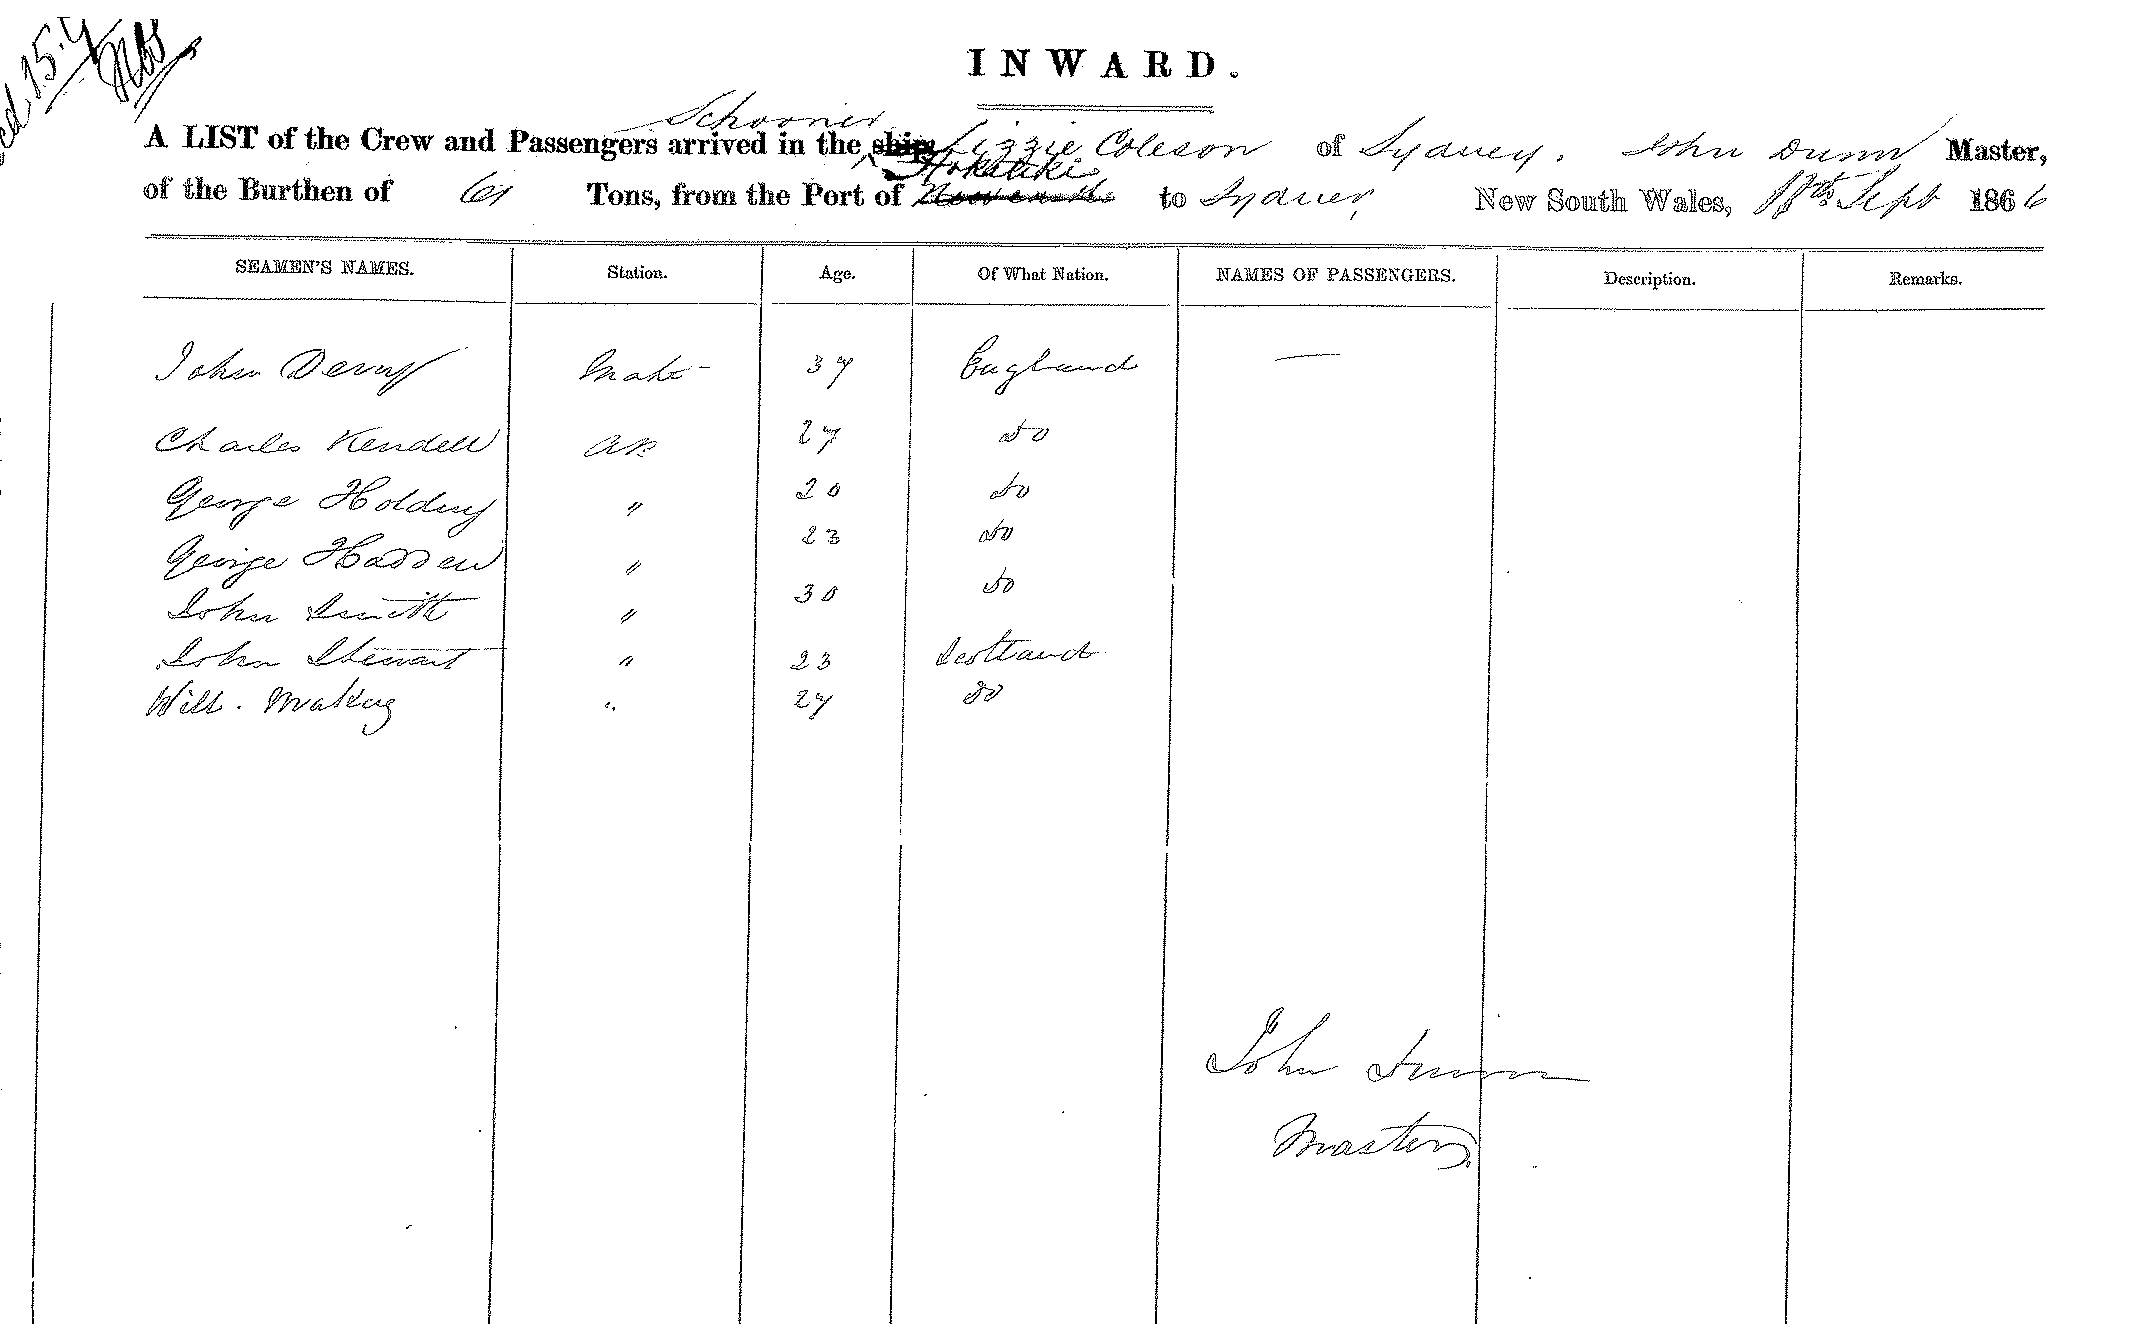 15.
INWARD.
Schooner
A LIST of the Crew and Passengers arrived in the ship Lizzie Coleson of Sydney. John Dunn Master,
Hokitiki
of the Burthen of 61 Tons, from the Port of Newcastle to Sydney, New South Wales, Sept 1866
SEAMEN'S NAMES. Station. Age. Of What Nation. NAMES OF PASSENGERS. Description. Remarks.
John Derry Mate - 37 England —
Charles Kendell AB 27 Do
George Holding " 20 Do
George Hadden " 23 Do
John Smith " 30 Do
John Stewart " 23 Scotland
Will. " 27 Do
John Dunn
Master